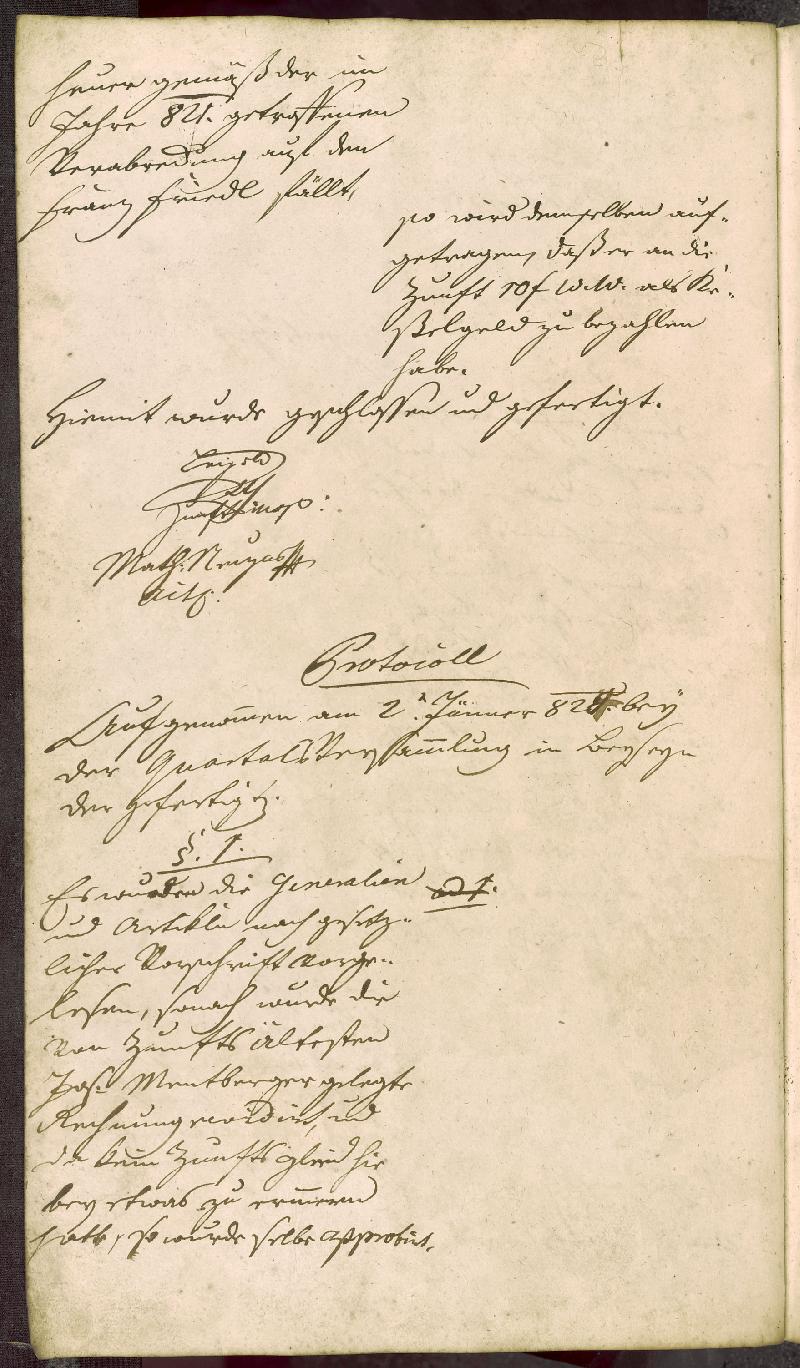 heuer gemäß der im
Jahre 821. getroffenen
Verabredung auf den
Franz Friedl fällt,
so wird demselben auf-
getragen, daß er an die
Zunft 10 f W.W. als Ke-
ßelgeld zu bezahlen
habe.
Hiemit wurde geschlossen und gefertigt.
Zunfts
Math:
Protocoll
Aufgenommen am 2. Jänner 82 bey
der Quartals Versammlung in Beyseyn
der Gefertigt.
§. 1.
Es wurden die Generalien
und Artikeln nach gesetz-
licher Vorschrift vorge-
lesen, sonach wurde die
von Zunfts ältesten
Jos: Mentberger gelegte
Rechnung revidirt, und
da kein Zunftsglied hie
bey etwas zu erinnern
hatte, so wurde selbe approbirt.
ad 1.